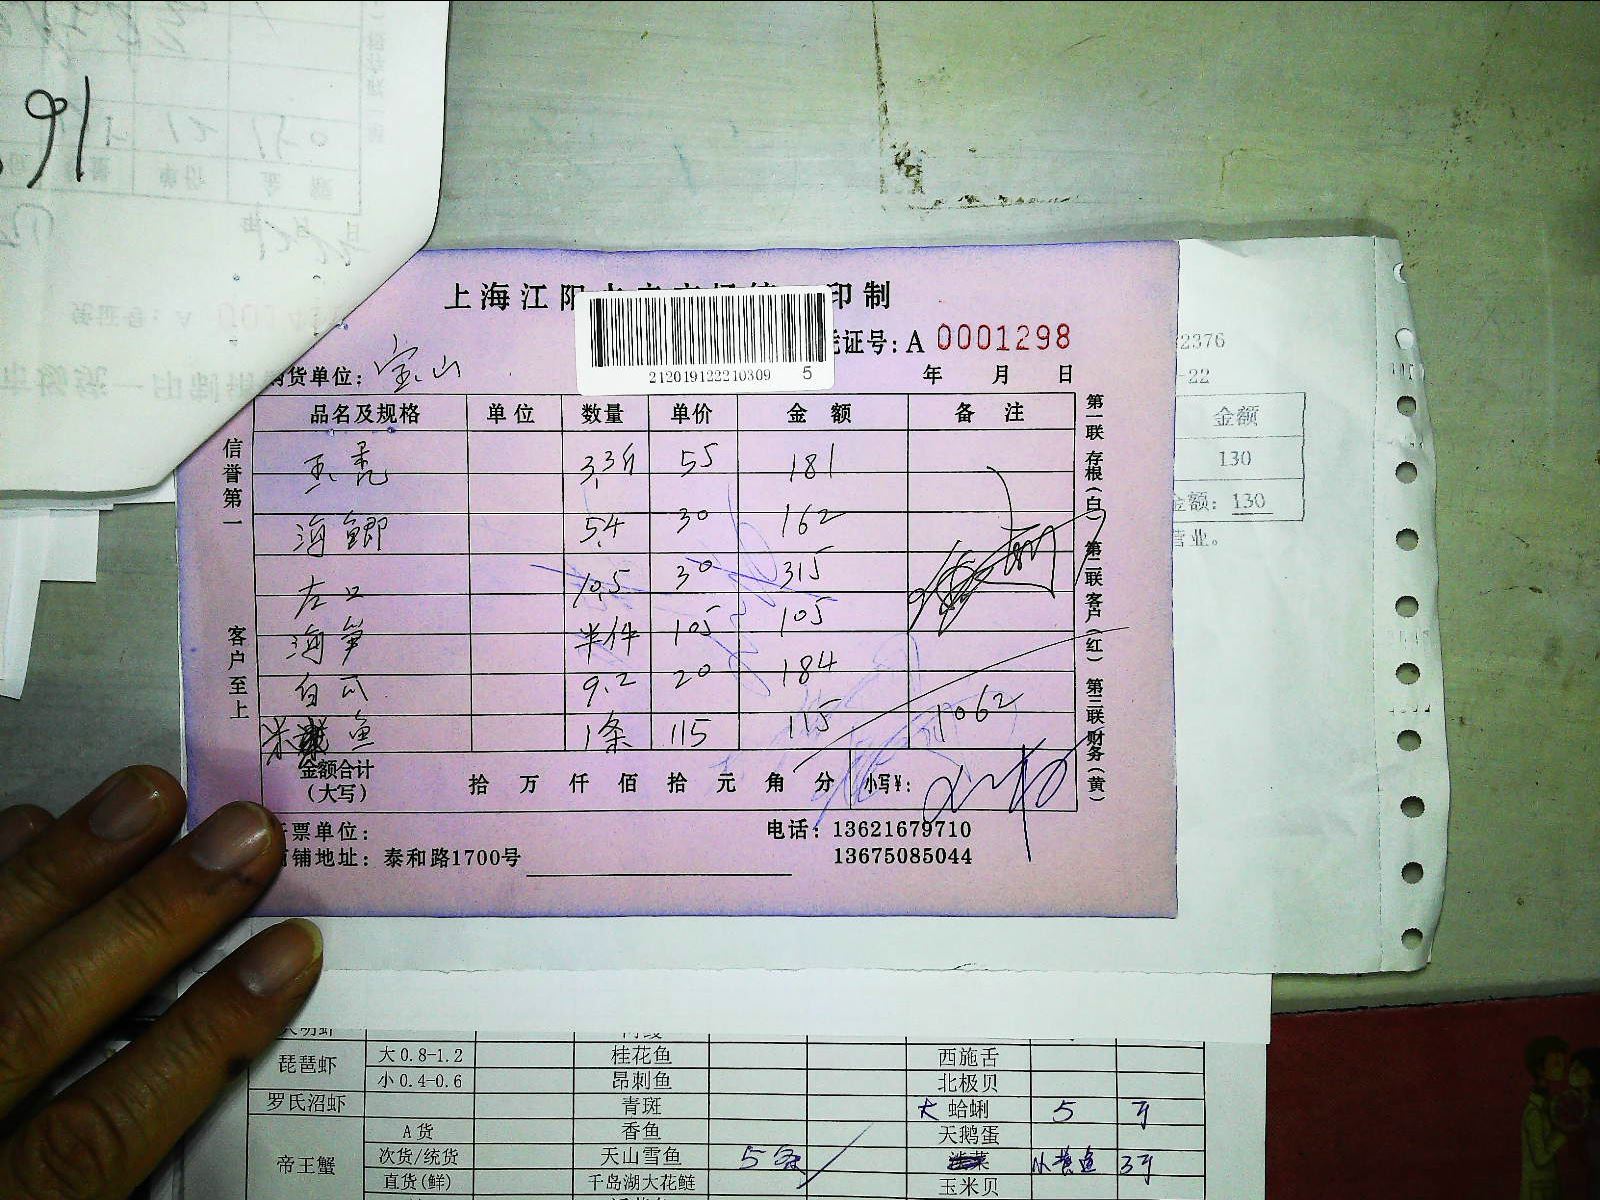 上海江阳 印制
212019122210309 5
证号：A 0001298
货单位：宝山
年 月 日
品名及规格 单位 数量 单价 金额 备注
3.3斤 55 181
海鲫 5.4 30 162
左口 10.5 30 315
海笋 半件 105 105
白爪 9.2 20 184
米 鱼 1条 115 115
1062
金额合计（大写） 拾 万 仟 佰 拾 元 角 分 小写¥：
票单位：
电话：13621679710
铺地址：泰和路1700号
13675085044
信誉第一
客户至上
第一联 存根（白） 第二联 客户（红） 第三联 财务（黄）
2376
-22
金额
130
金额：130
营业。
琵琶虾 大0.8-1.2 桂花鱼 西施舌
小0.4-0.6 昂刺鱼 北极贝
罗氏沼虾 青斑 大 蛤蜊 5 斤
A货 香鱼 天鹅蛋
帝王蟹 次货/统货 天山雪鱼 3斤
直货(鲜) 千岛湖大花鲢 玉米贝